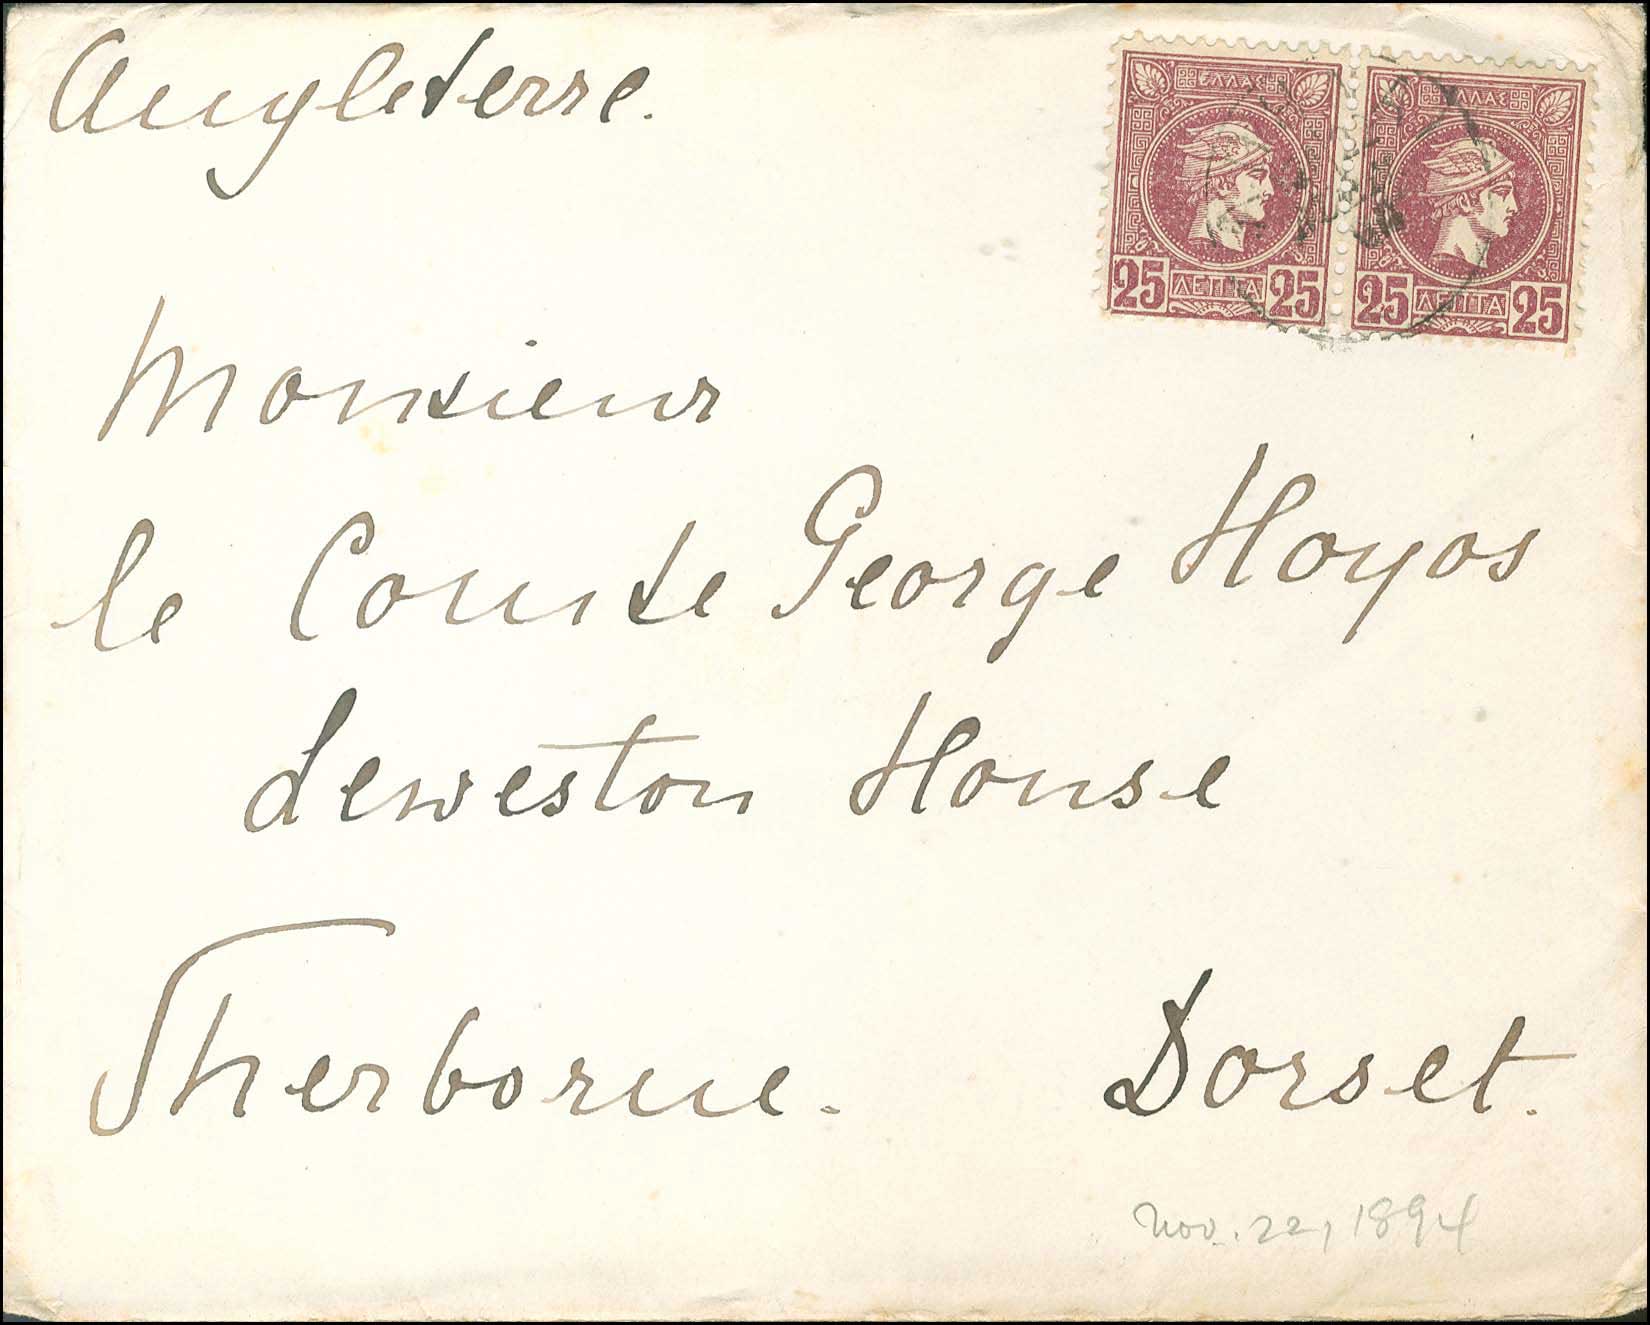 Angleterre.
ΕΛΛΑΣ ΕΛΛΑΣ
25 ΛΕΠΤΑ 25 25 ΛΕΠΤΑ 25
Monsieur
le Comte George Hoyos
Leweston House
Sherborne. Dorset.
Nov. 22, 1894